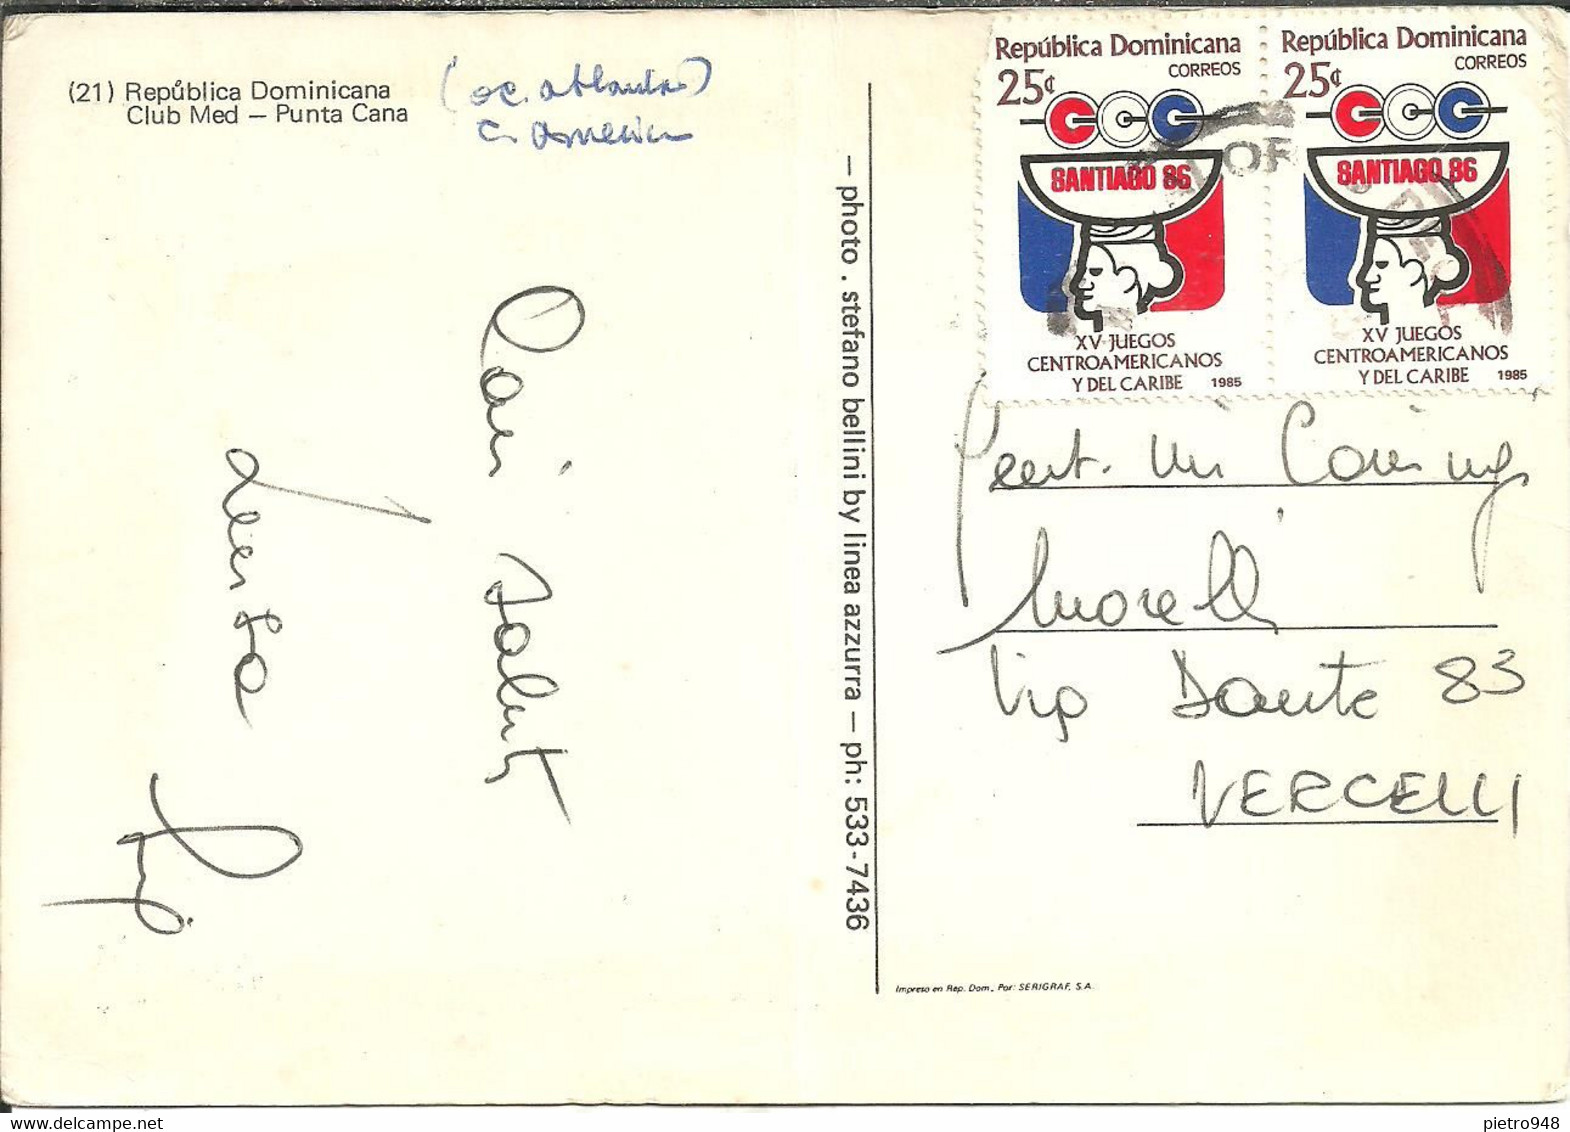 (21) República Dominicana
Club Med – Punta Cana
(oc. atlantico)
C. America
Cari saluti
– photo . stefano bellini by linea azzurra – ph: 533-7436
República Dominicana
25¢ CORREOS
SANTIAGO 86
XV JUEGOS
CENTROAMERICANOS
Y DEL CARIBE 1985
República Dominicana
25¢ CORREOS
SANTIAGO 86
XV JUEGOS
CENTROAMERICANOS
Y DEL CARIBE 1985
Gent. mi
Morelli
Via Dante 83
VERCELLI
Impreso en Rep. Dom., Por: SERIGRAF, S.A.
pietro948